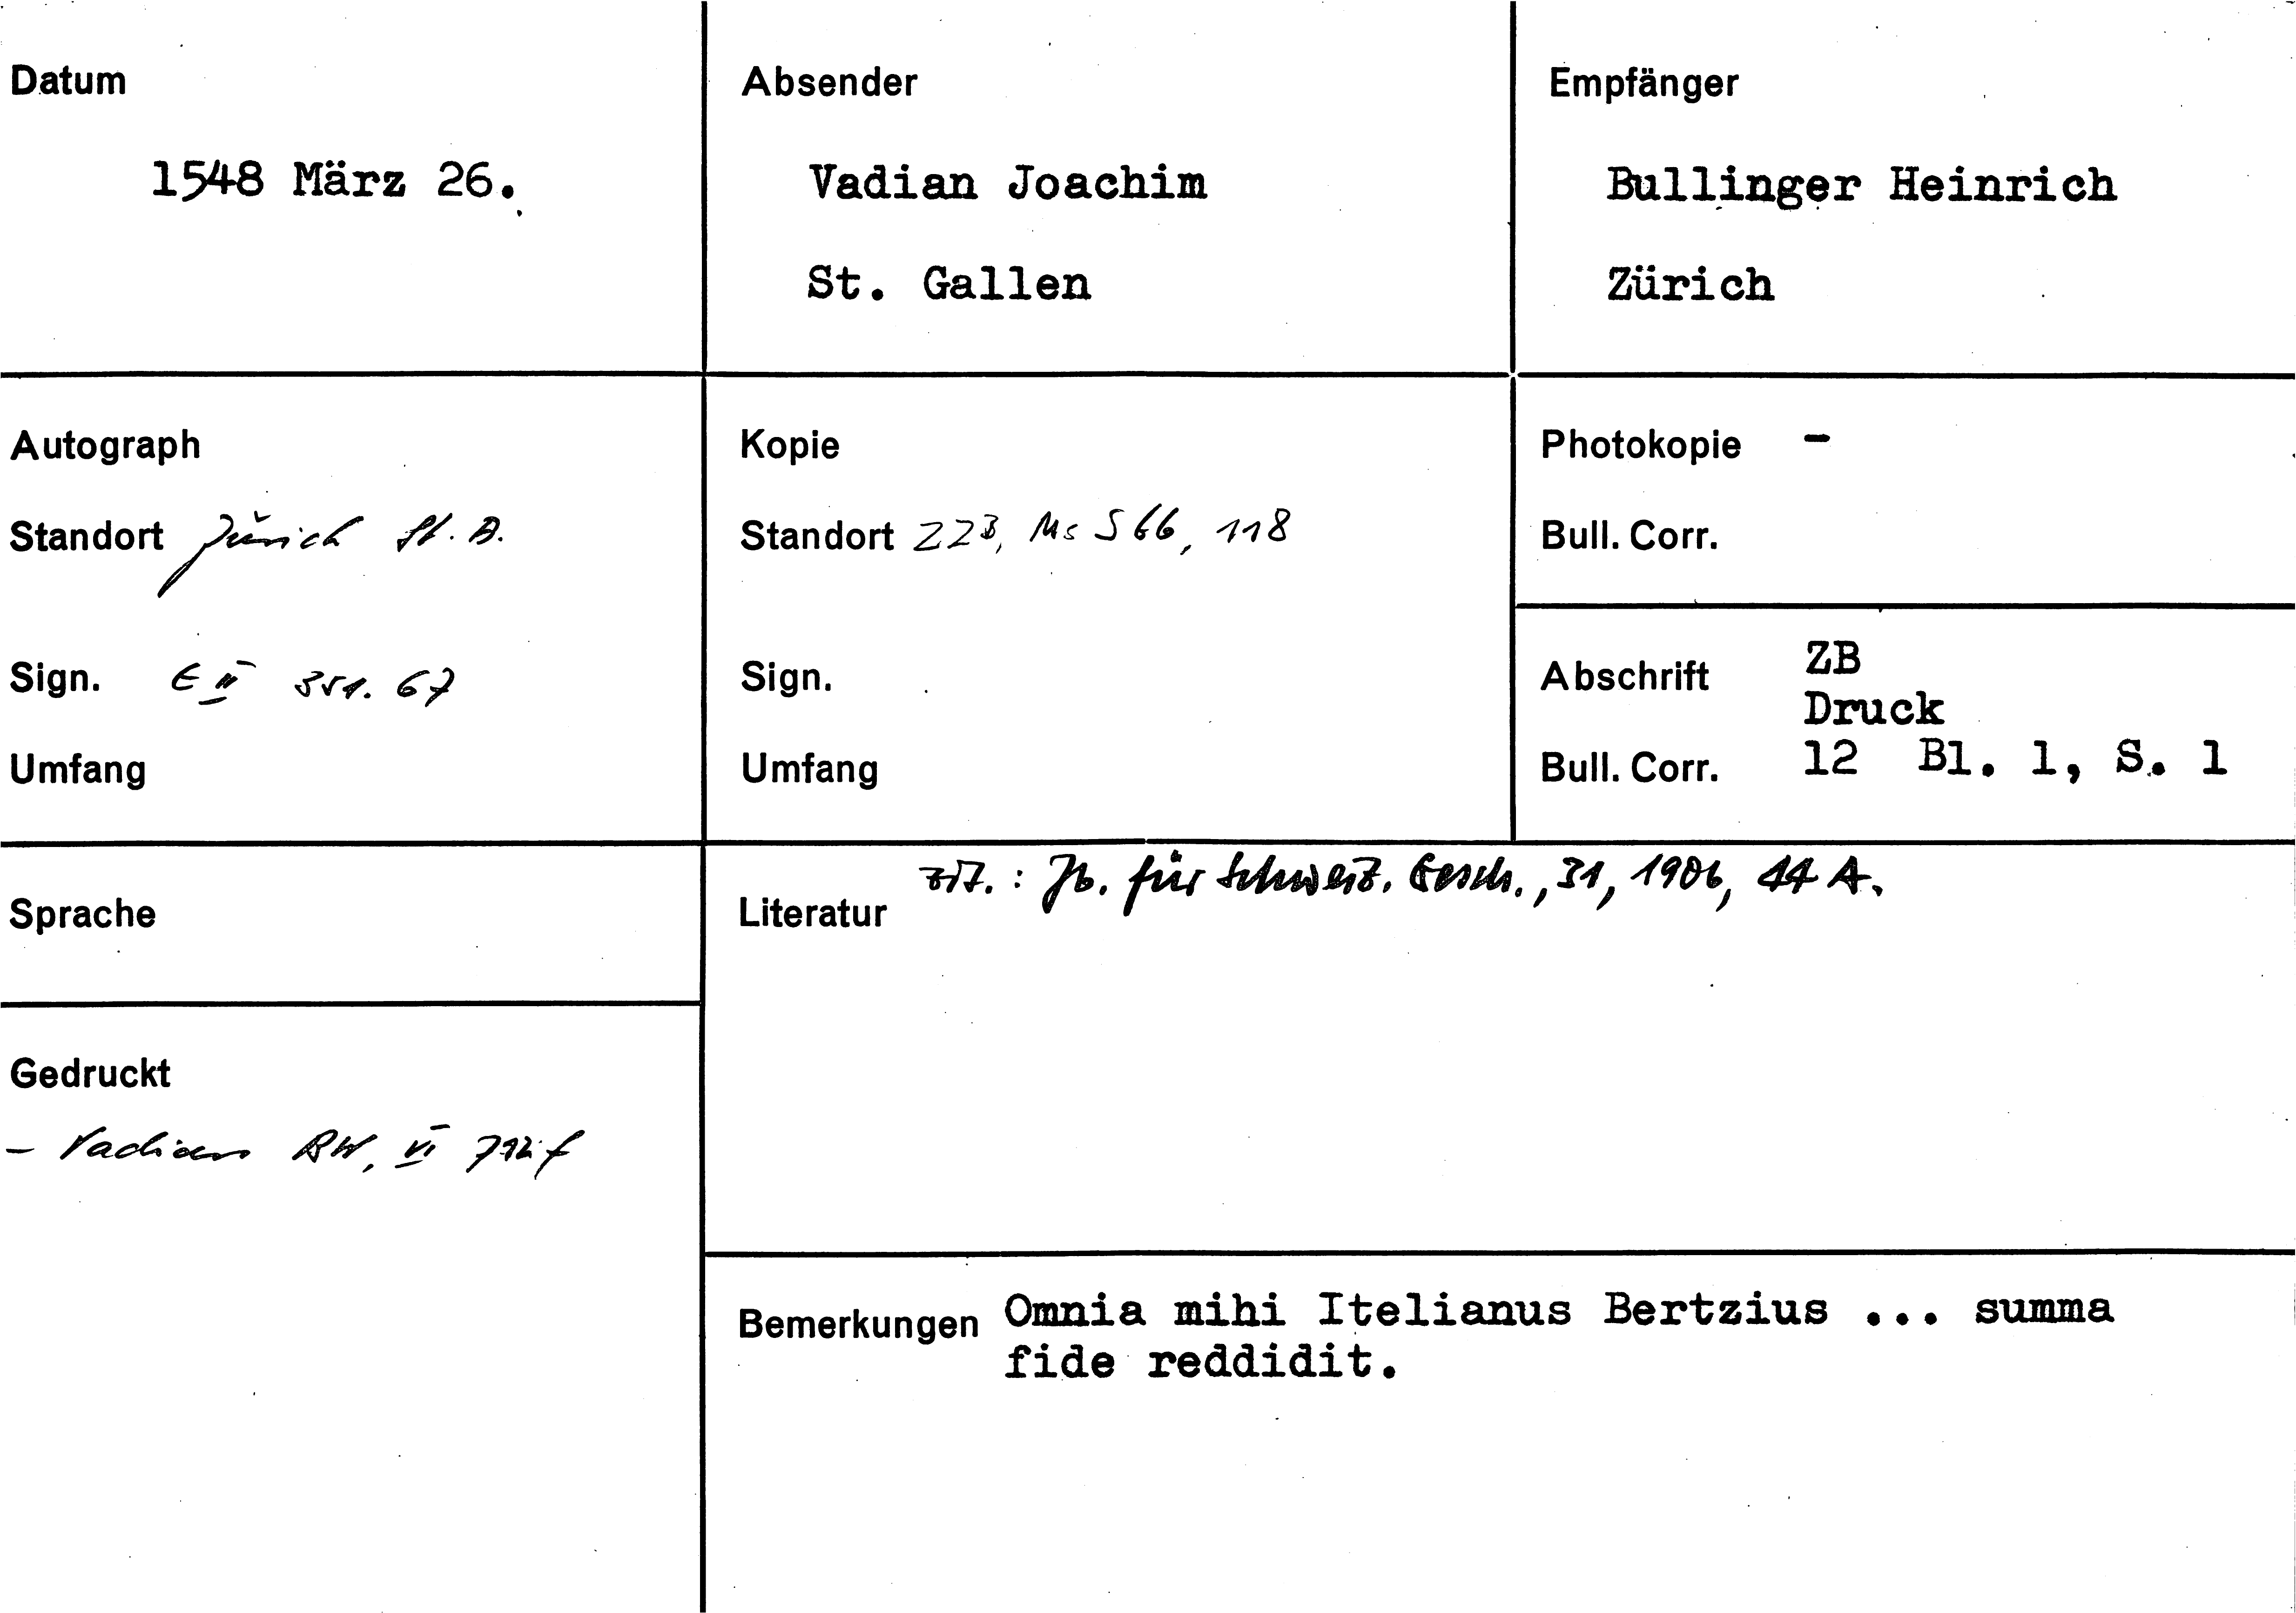 Datum
1548 März 26.
Absender
Vadian Joachim
St. Gallen
Empfänger
Bullinger Heinrich
Zürich
Autograph
Standort Zürich St. A.
Sign. E II 351. 67
Umfang
Kopie
Standort ZZB, Ms S 66, 118
Sign.
Umfang
Photokopie -
Bull. Corr.
Abschrift ZB
Druck
Bull. Corr. 12 Bl. 1, S. 1
Sprache
Gedruckt
- Vadian BW, VI 712 f
Literatur zit. : Jb. für Schweiz. Gesch., 31, 1906, 44 A.
Bemerkungen Omnia mihi Itelianus Bertzius ... summa
fide reddidit.